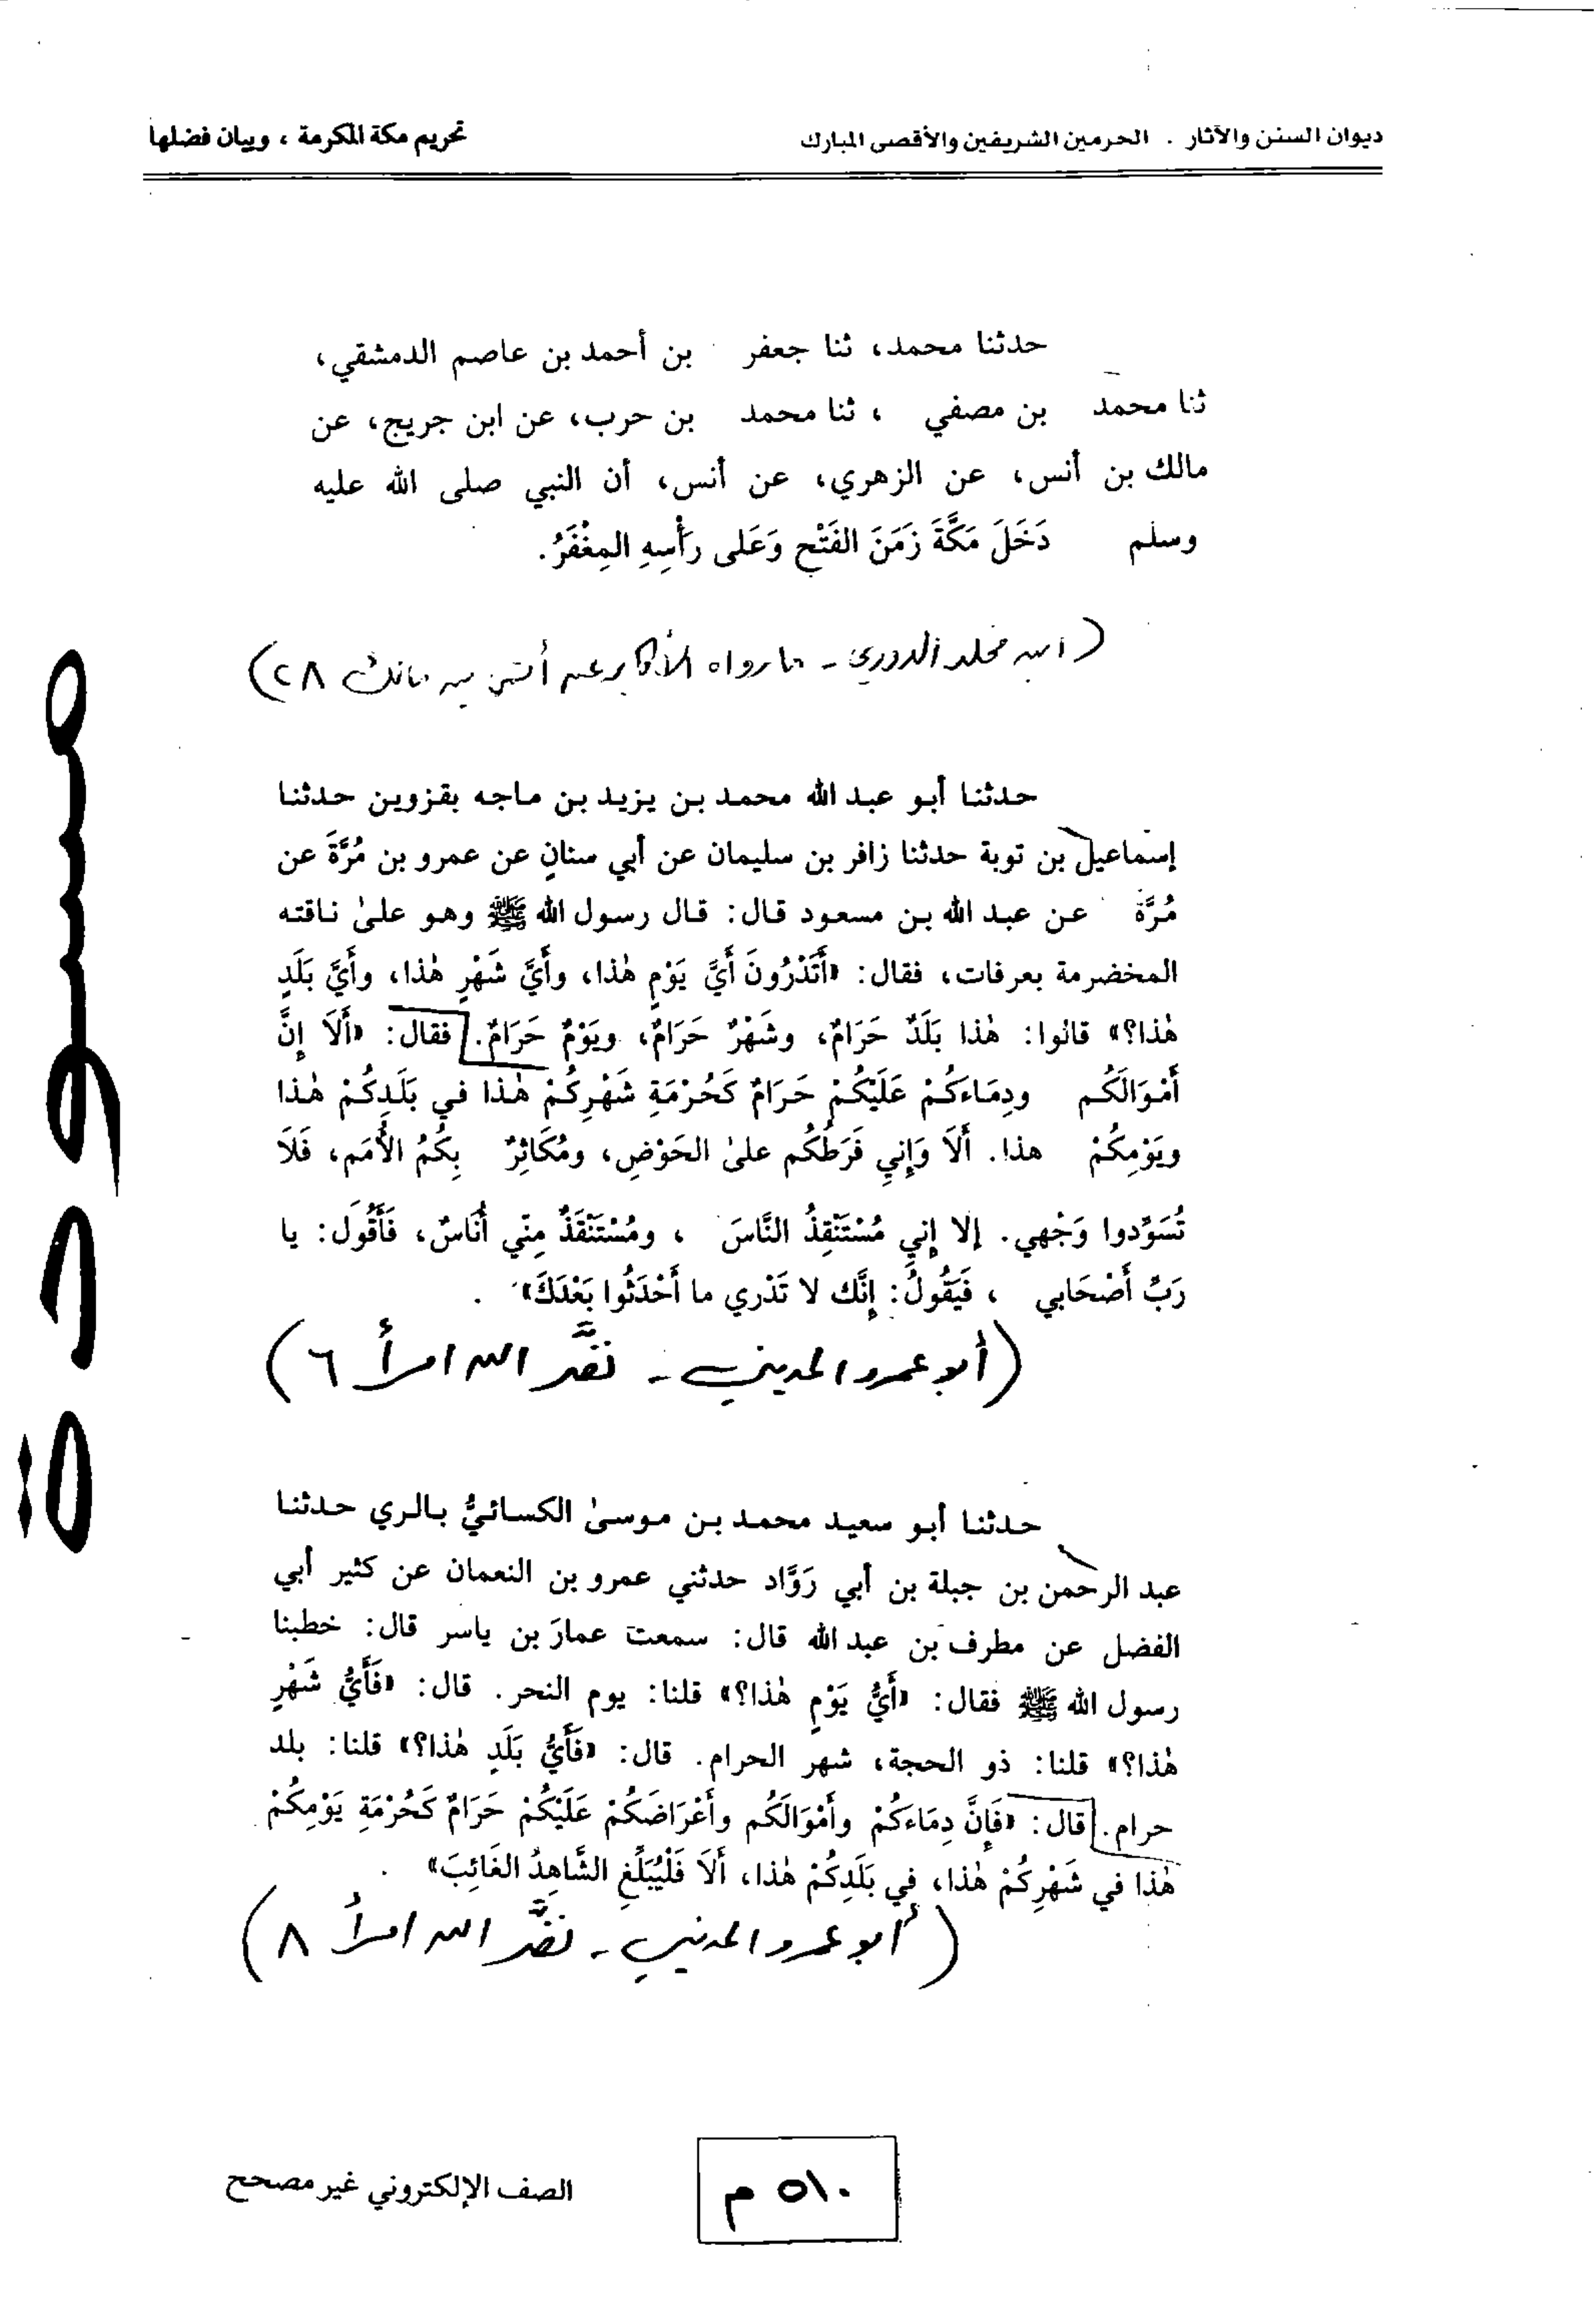 ديوان السنن والآثار . الحرمين الشريفين والأقصى المبارك
تحريم مكة المكرمة ، وبيان فضلها
حدثنا محمد، ثنا جعفر بن أحمد بن عاصم الدمشقي،
ثنا محمد بن مصفي ، ثنا محمد بن حرب، عن ابن جريج، عن
مالك بن أنس، عن الزهري، عن أنس، أن النبي صلى الله عليه
وسلم دَخَلَ مَكَّةَ زَمَنَ الفَتْحِ وَعَلى رَأْسِهِ المِغْفَرُ.
(ابن مخلد الدوري - ما رواه الأكابر عن أنس بن مالك ٢٨)
حدثنا أبو عبد الله محمد بن يزيد بن ماجه بقزوين حدثنا
إسماعيل بن توبة حدثنا زافر بن سليمان عن أبي سنانٍ عن عمرو بن مُرَّةَ عن
مُرَّة عن عبد الله بن مسعود قال: قال رسول الله ﷺ وهو علىٰ ناقته
المخضرمة بعرفات، فقال: «أَتَدْرُونَ أَيَّ يَوْمٍ هٰذا، وأَيَّ شَهْرٍ هٰذا، وأَيَّ بَلَدٍ
هٰذا؟» قالوا: هٰذا بَلَدٌ حَرَامٌ، وشَهْرٌ حَرَامٌ، ويَوْمٌ حَرَامٌ. فقال: «أَلَا إِنَّ
أَمْوَالَكُم ودِمَاءَكُمْ عَلَيْكُمْ حَرَامٌ كَحُرْمَةِ شَهْرِكُمْ هٰذا في بَلَدِكُمْ هٰذا
ويَوْمِكُمْ هذا. أَلَا وَإِني فَرَطُكُم علىٰ الحَوْضِ، ومُكَاثِرٌ بِكُمُ الأُمَم، فَلَا
تُسَوِّدوا وَجْهي. إلا إِني مُسْتَنْقِذُ النَّاسَ ، ومُسْتَنْقَذٌ مِنّي أُنَاسٌ، فَأَقُولَ: يا
رَبِّ أَصْحَابي ، فَيَقُولُ: إنَّك لا تَدْري ما أَحْدَثُوا بَعْدَكَ» .
(أبو عمرو المديني - نضَّر الله امرأً ٦)
حدثنا أبو سعيد محمد بن موسىٰ الكسائيُّ بالري حدثنا
عبد الرحمن بن جبلة بن أبي رَوَّاد حدثني عمرو بن النعمان عن كثير أبي
الفضل عن مطرف بن عبد الله قال: سمعت عمارَ بن ياسر قال: خطبنا
رسول الله ﷺ فقال: «أَيُّ يَوْمٍ هٰذا؟» قلنا: يوم النحر. قال: «فَأَيُّ شَهْرٍ
هٰذا؟» قلنا: ذو الحجة، شهر الحرام. قال: «فَأَيُّ بَلَدٍ هٰذا؟» قلنا: بلد
حرام. قال: «فَإِنَّ دِمَاءَكُمْ وأَمْوَالَكُم وأَعْرَاضَكُمْ عَلَيْكُمْ حَرَامٌ كَحُرْمَةِ يَوْمِكُمْ
هٰذا في شَهْرِكُمْ هٰذا، في بَلَدِكُمْ هٰذا، أَلَا فَلْيُبَلِّغِ الشَّاهِدُ الغَائِبَ» .
(أبو عمرو المديني - نضَّر الله امرأً ٨)
مسودة
٥١٠ م
الصف الإلكتروني غير مصحح